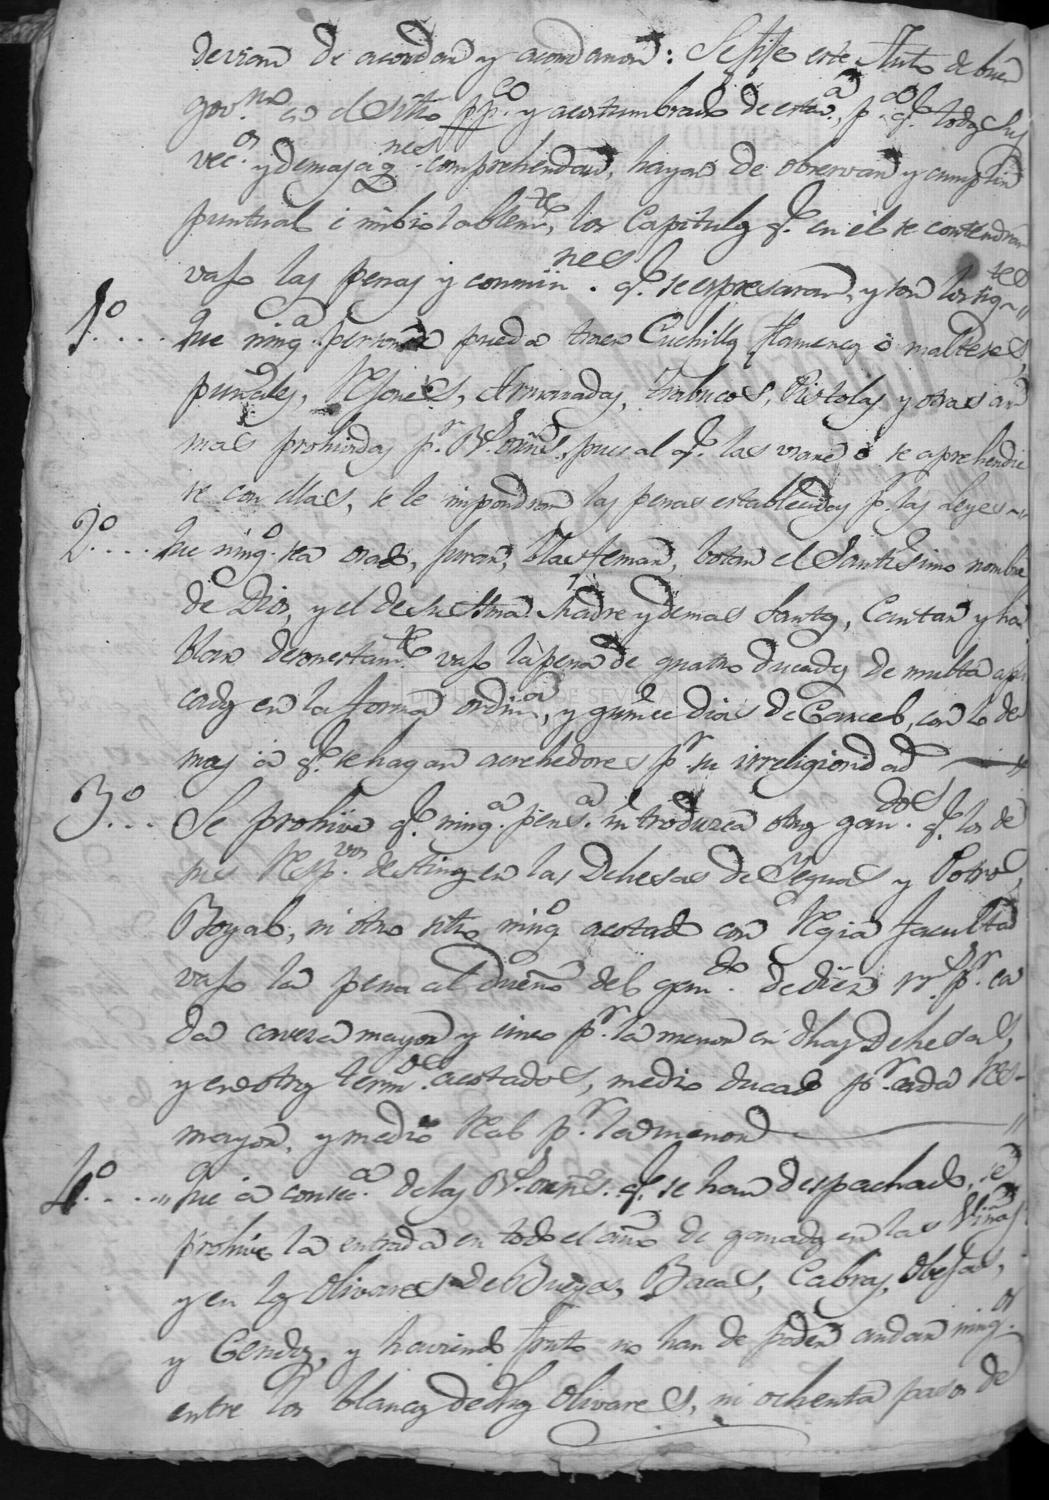 devian de acordar y acordaron: Se fije este Auto de buen
gov.no en el sitio pp.co y acostumbrado de esta v.a, p.a q.e todos sus
vec.os y demas a q.nes comprehendan, hayan de observar y cumplir
puntual è imbiolablem.te, los Capitulos q.e en èl se contendran
vajo las penas y conmin.nes q.e se espresaran, y son los sig.tes
1.º .... Que ning.a persona pueda traer Cuchillos flamencos ò malteses,
puñales, Rejones, Almaradas, trabucos, Pistolas y otras ar
mas prohividas p.r R.s orns., pues al q.e las usare ò se aprehendie
se con ellas, se le impondran las penas establecidas p.r las Leyes
2.º .... Que ning.o sea osado, jurar, blasfemar, botar el Santisimo nombre
de Dios, y el de su SSma. Madre y demas Santos, Cantar y ha
blar desonestam.te vajo la pena de quatro ducados de multa apli
cados en la forma ordin.a, y quince dias de Carcel, con lo de
mas à q.e se hagan acrehedores p.r su irreligiosidad
3.º ... Se prohive q.e ning.a pers.a introduzca otros gan.dos q.e los de
sus resp.vos destinos en las Dehesas de Yeguas y Potros,
Boyal, ni otro sitio ning.o acotado con Regia facultad
vajo la pena al Dueño del gan.do de diez rr.s p.r ca
da caveza mayor y cinco p.r la menor en dhas Dehesas,
y en otros term.os acotados, medio ducado p.r cada Res
mayor, y medio Real p.r la menor
4.º .... Que à consec.a de las R.s orns. q.e se han despachado, se
prohive la entrada en todo el año de ganados en las Viñas
y en los Olivares de Bueyes, Bacas, Cabras, Obejas,
y Cerdos, y haviendo fruto no han de poder andar ning.os
entre los blancos de dhos Olivares, ni ochenta pasos de